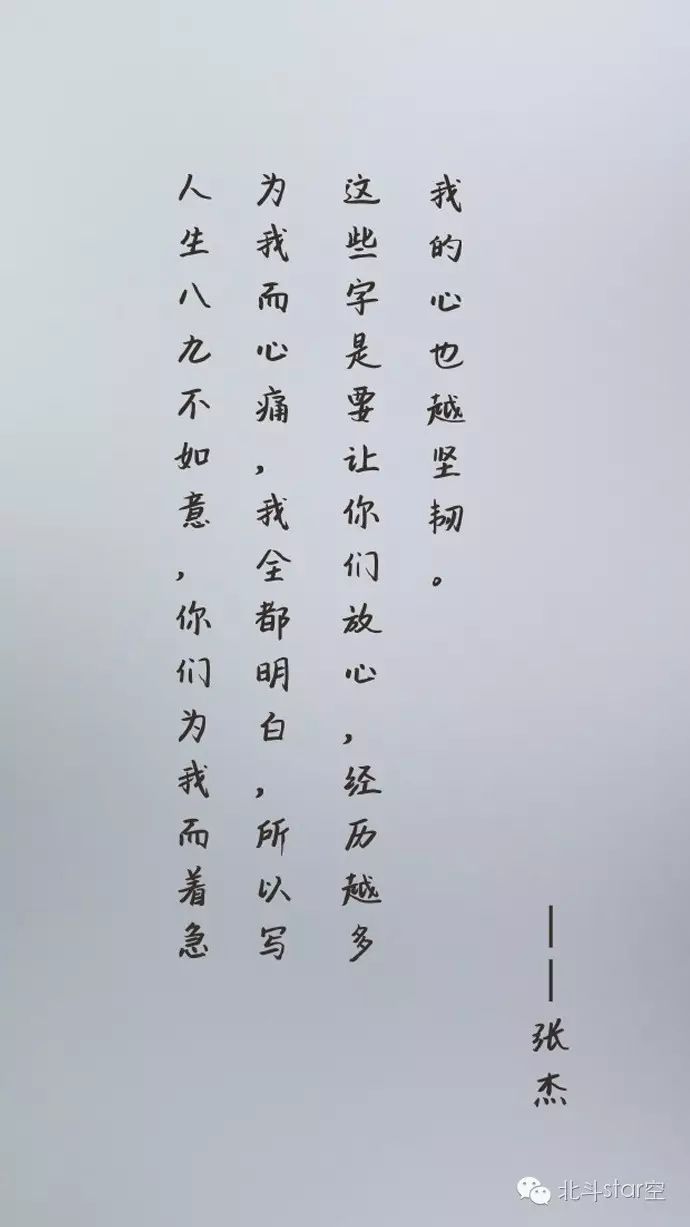 人生八九不如意，你们为我而着急
为我而心痛，我全都明白，所以写
这些字是要让你们放心，经历越多
我的心也越坚韧。
——张杰
北斗star空